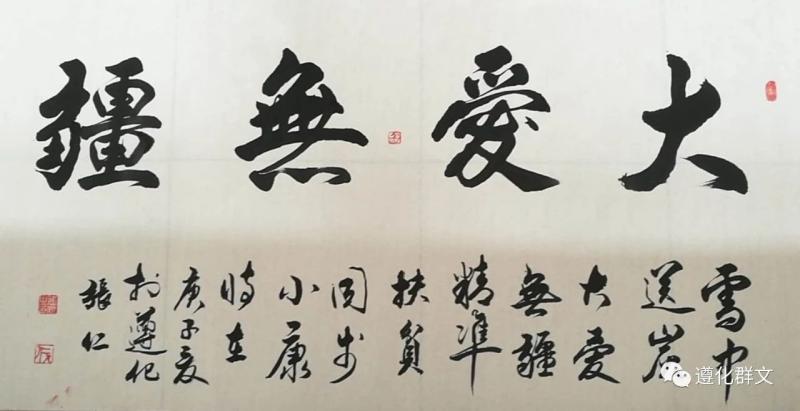 大愛無疆
雪中
送炭
大愛
無疆
精準
扶貧
同步
小康
時在
庚子夏
於遵化
張仁
遵化群文